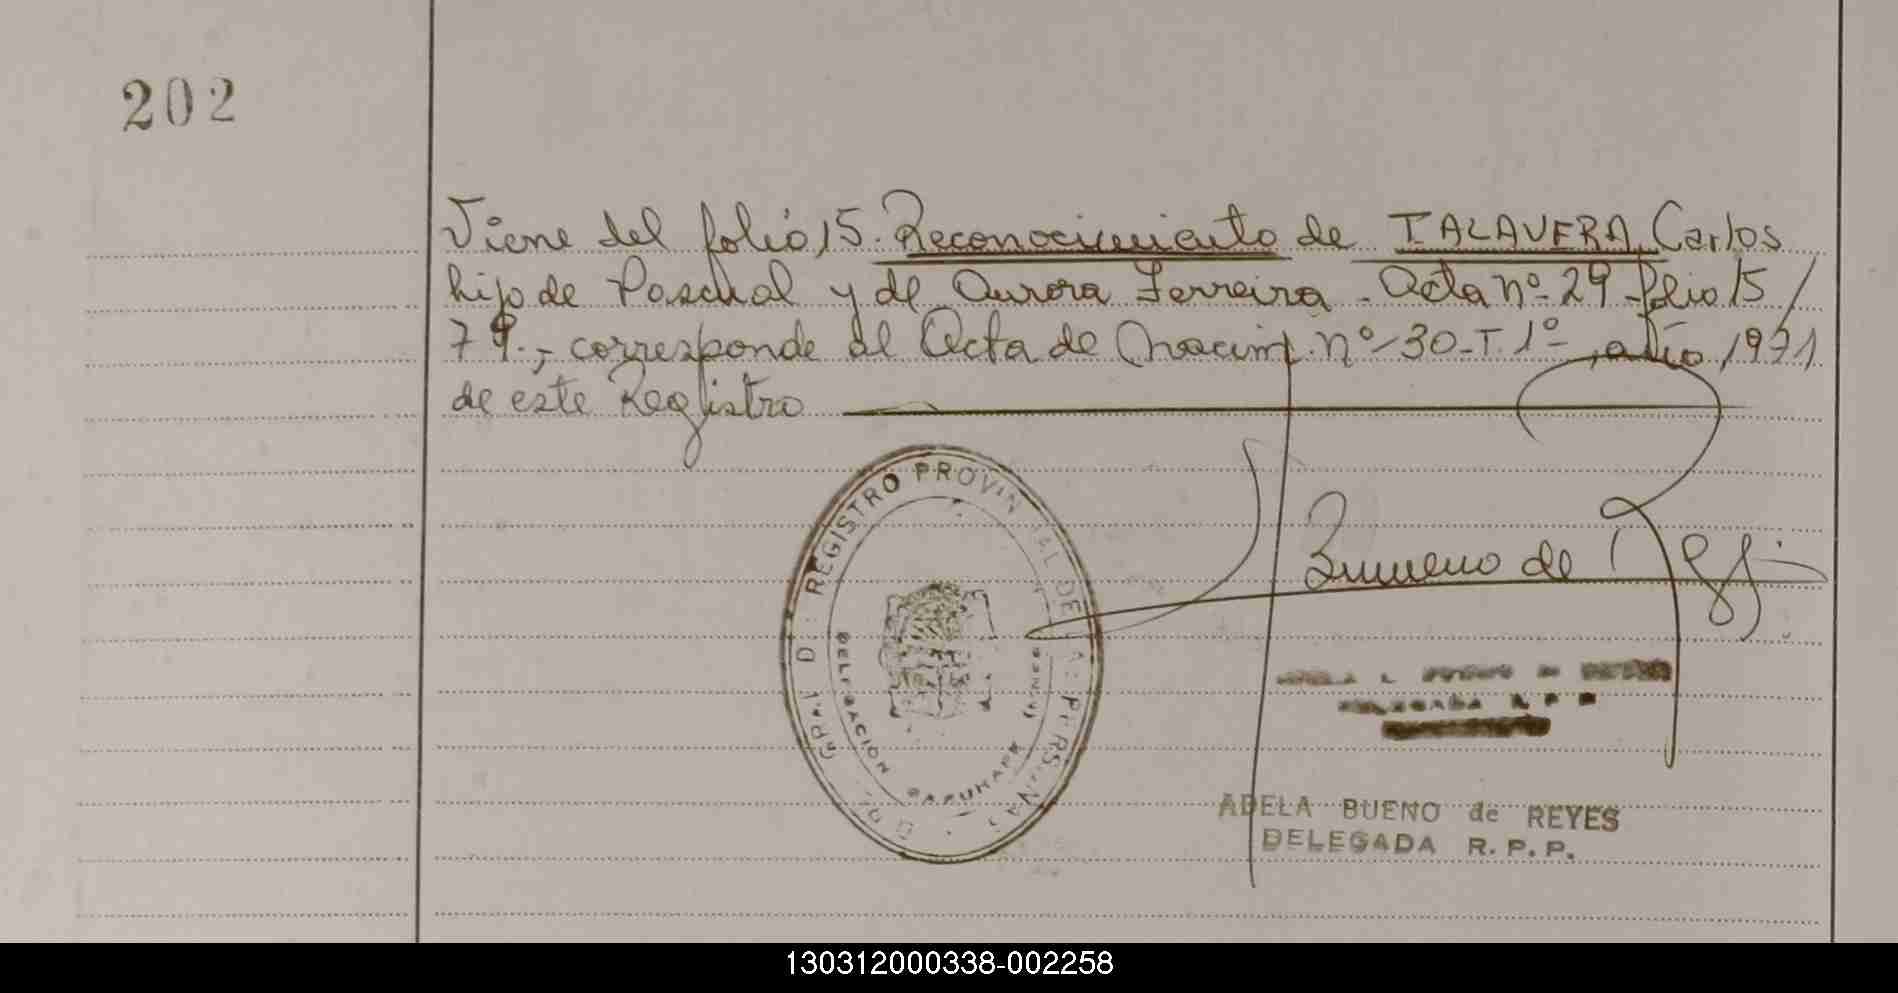 202
Viene del folio 15. Reconocimiento de TALAVERA, Carlos
hijo de Pascual y de Aurora Ferreira - Acta nº 29 - folio 15/
79.-, corresponde al Acta de Nacim. nº 30 - T. 1º, año 1971
de este Registro
REGISTRO PROVINCIAL DE LAS PERSONAS
GRAL D.
DELEGACION GARUHAPE
Bueno de
ADELA BUENO de REYES
DELEGADA R. P. P.
DELEGADA R P P
ADELA BUENO de REYES
DELEGADA R. P. P.
130312000338-002258